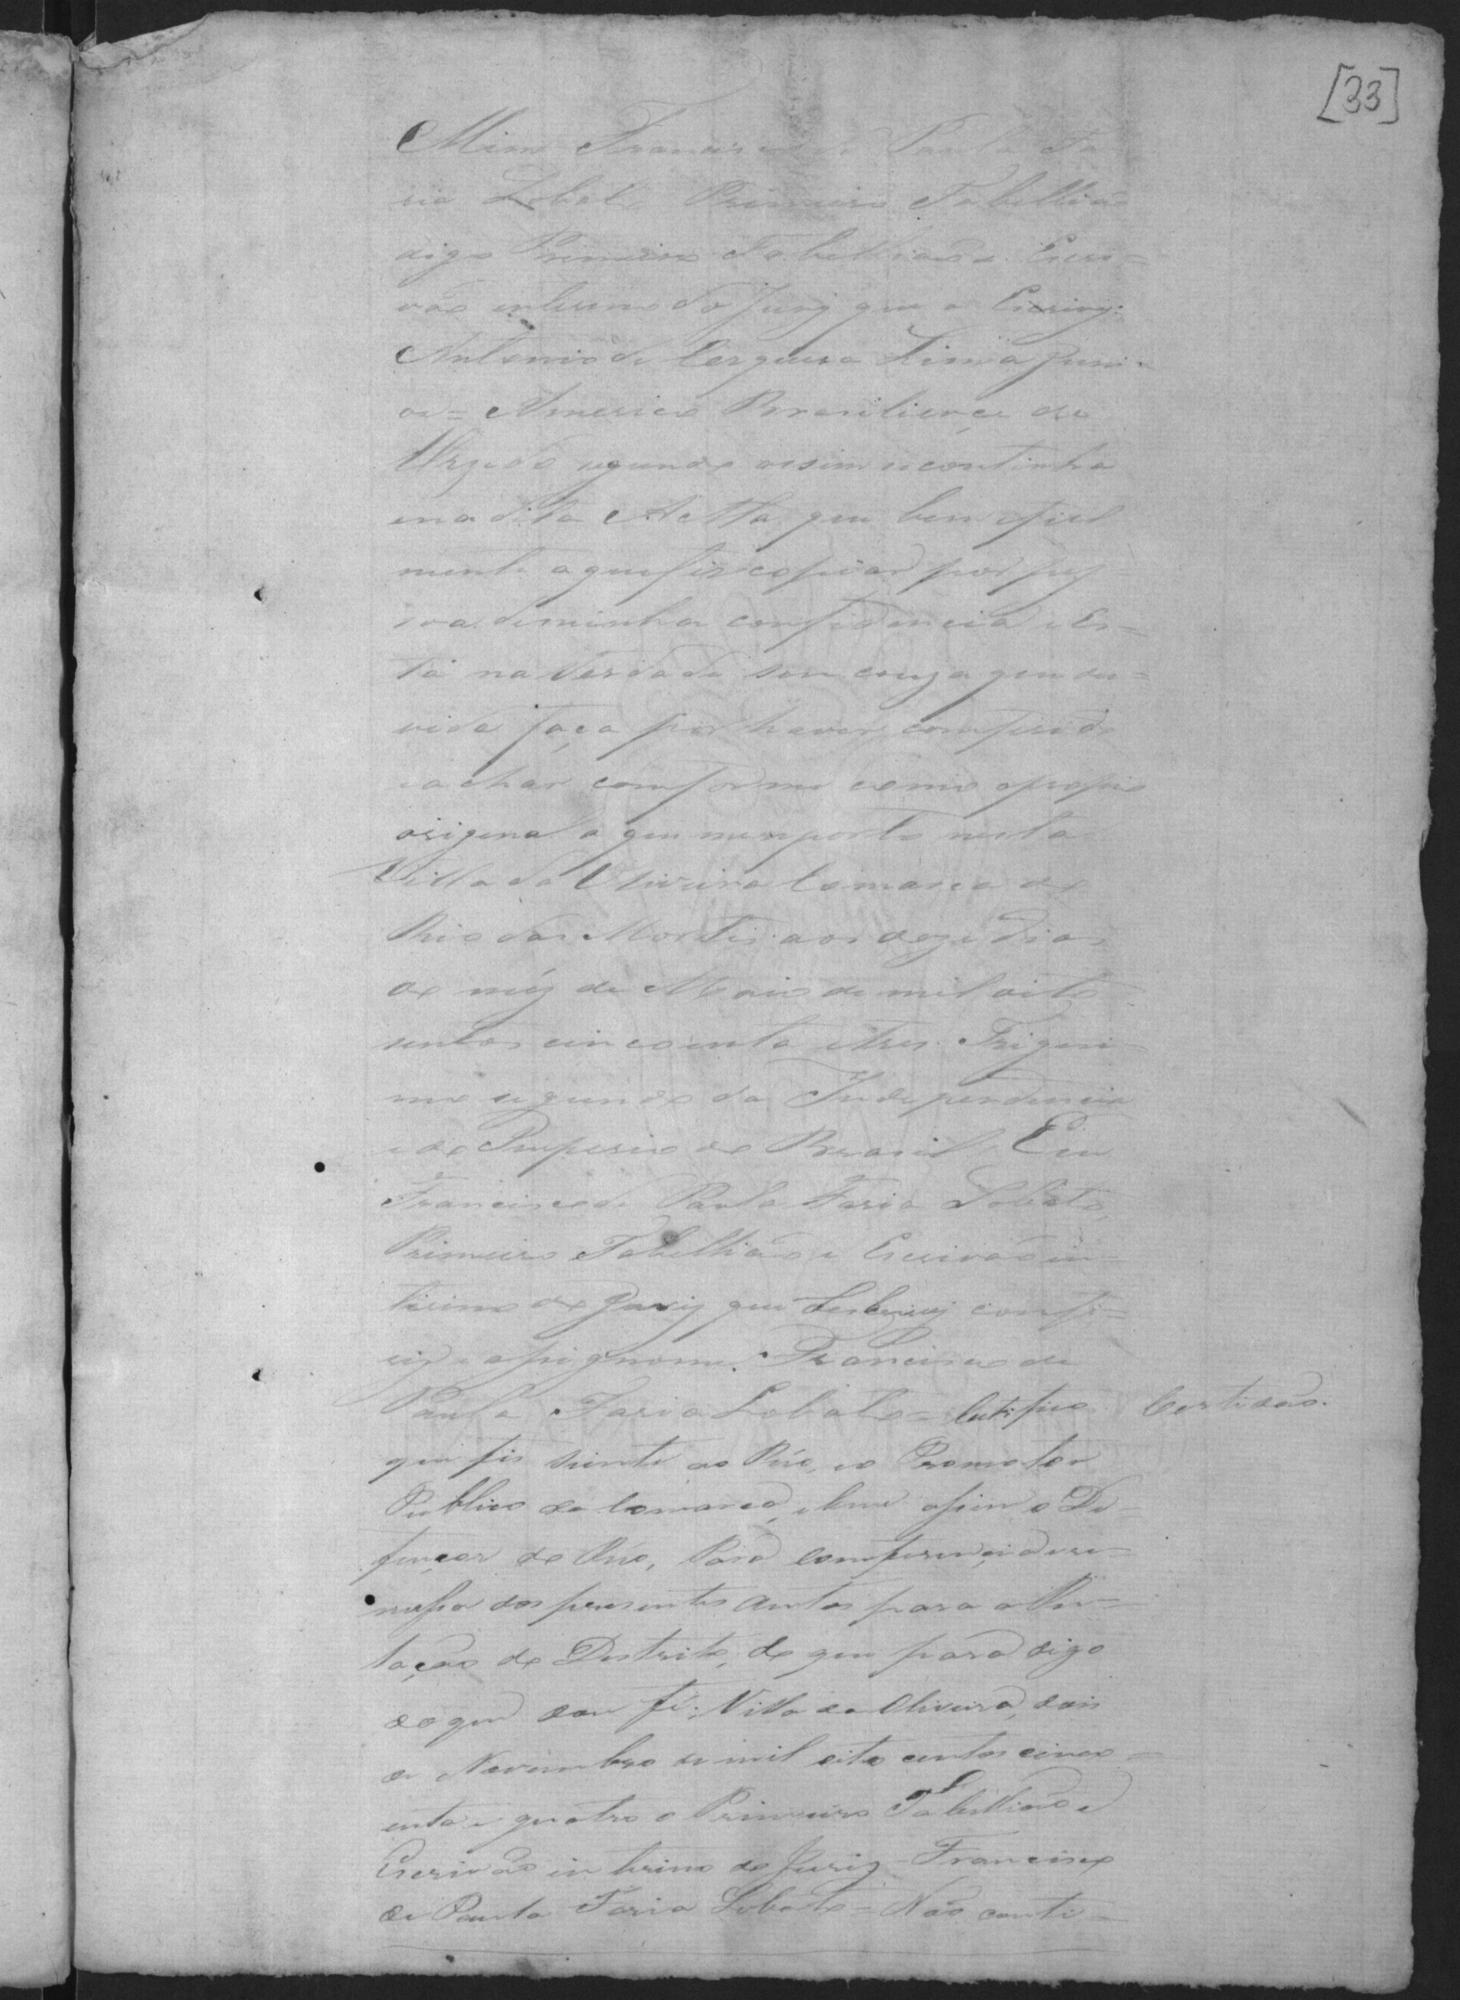 [33]
Mim Francisco de Paula Fa
ria Lobato Primeiro Tabellião
digo Primeiro Tabellião e Escri=
vão interino do Jury que o Escrivy.
Antonio de Cerqueira Lima Juni-
or = Americo Brasiliense de
segundo assim se continha
em a dita Actta que bem e fiel
mente aqui fis copiar por pes
soa de minha confidencia e Es=
tá na Verdade sem couza que du=
vida faça por haver conferido
e achar conforme como o proprio
original a que me reporto nesta
Villa da Oliveira Comarca do
Rio das Mortes aos doze dias
do mêz de Maio de mil oito
sentos cincoenta e tres Trigeci-
mo segundo da Independencia
e do Imperio do Brasil. Eu
Francisco de Paula Faria Lobato,
Primeiro Tabellião e Escrivão in-
terino do Jury que Sobescrevy confe=
rey e assignome. Francisco de
Paula Faria Lobato = Certifico
Certidão.
que fis siente ao Réo, eo Promotor
Publico da Comarca, e bem assim o De=
fençor do Réo, para conferencia e re=
messa dos presentes autos para a Re=
lação do Destrito, do que para digo
do que dou fé. Villa da Oliveira, dois
de Novembro de mil oito centos cinco=
enta e quatro o Primeiro Tabellião e
Escrivão interino do Jury - Francisco
de Paula Faria Lobato = Não conti=